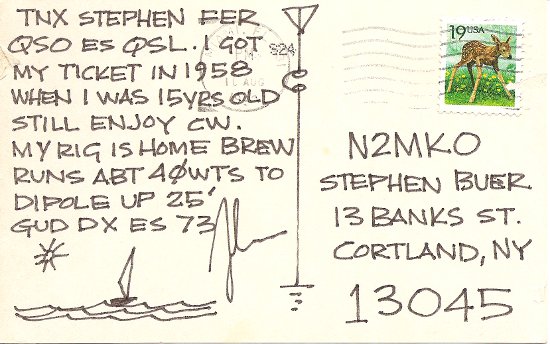 TNX STEPHEN FER
QSO ES QSL. I GOT
MY TICKET IN 1958
WHEN I WAS 15YRS OLD
STILL ENJOY CW.
MY RIG IS HOME BREW
RUNS ABT 4ØWTS TO
DIPOLE UP 25'
GUD DX ES 73
19USA
N2MKO
STEPHEN BUER
13 BANKS ST.
CORTLAND, NY
13045